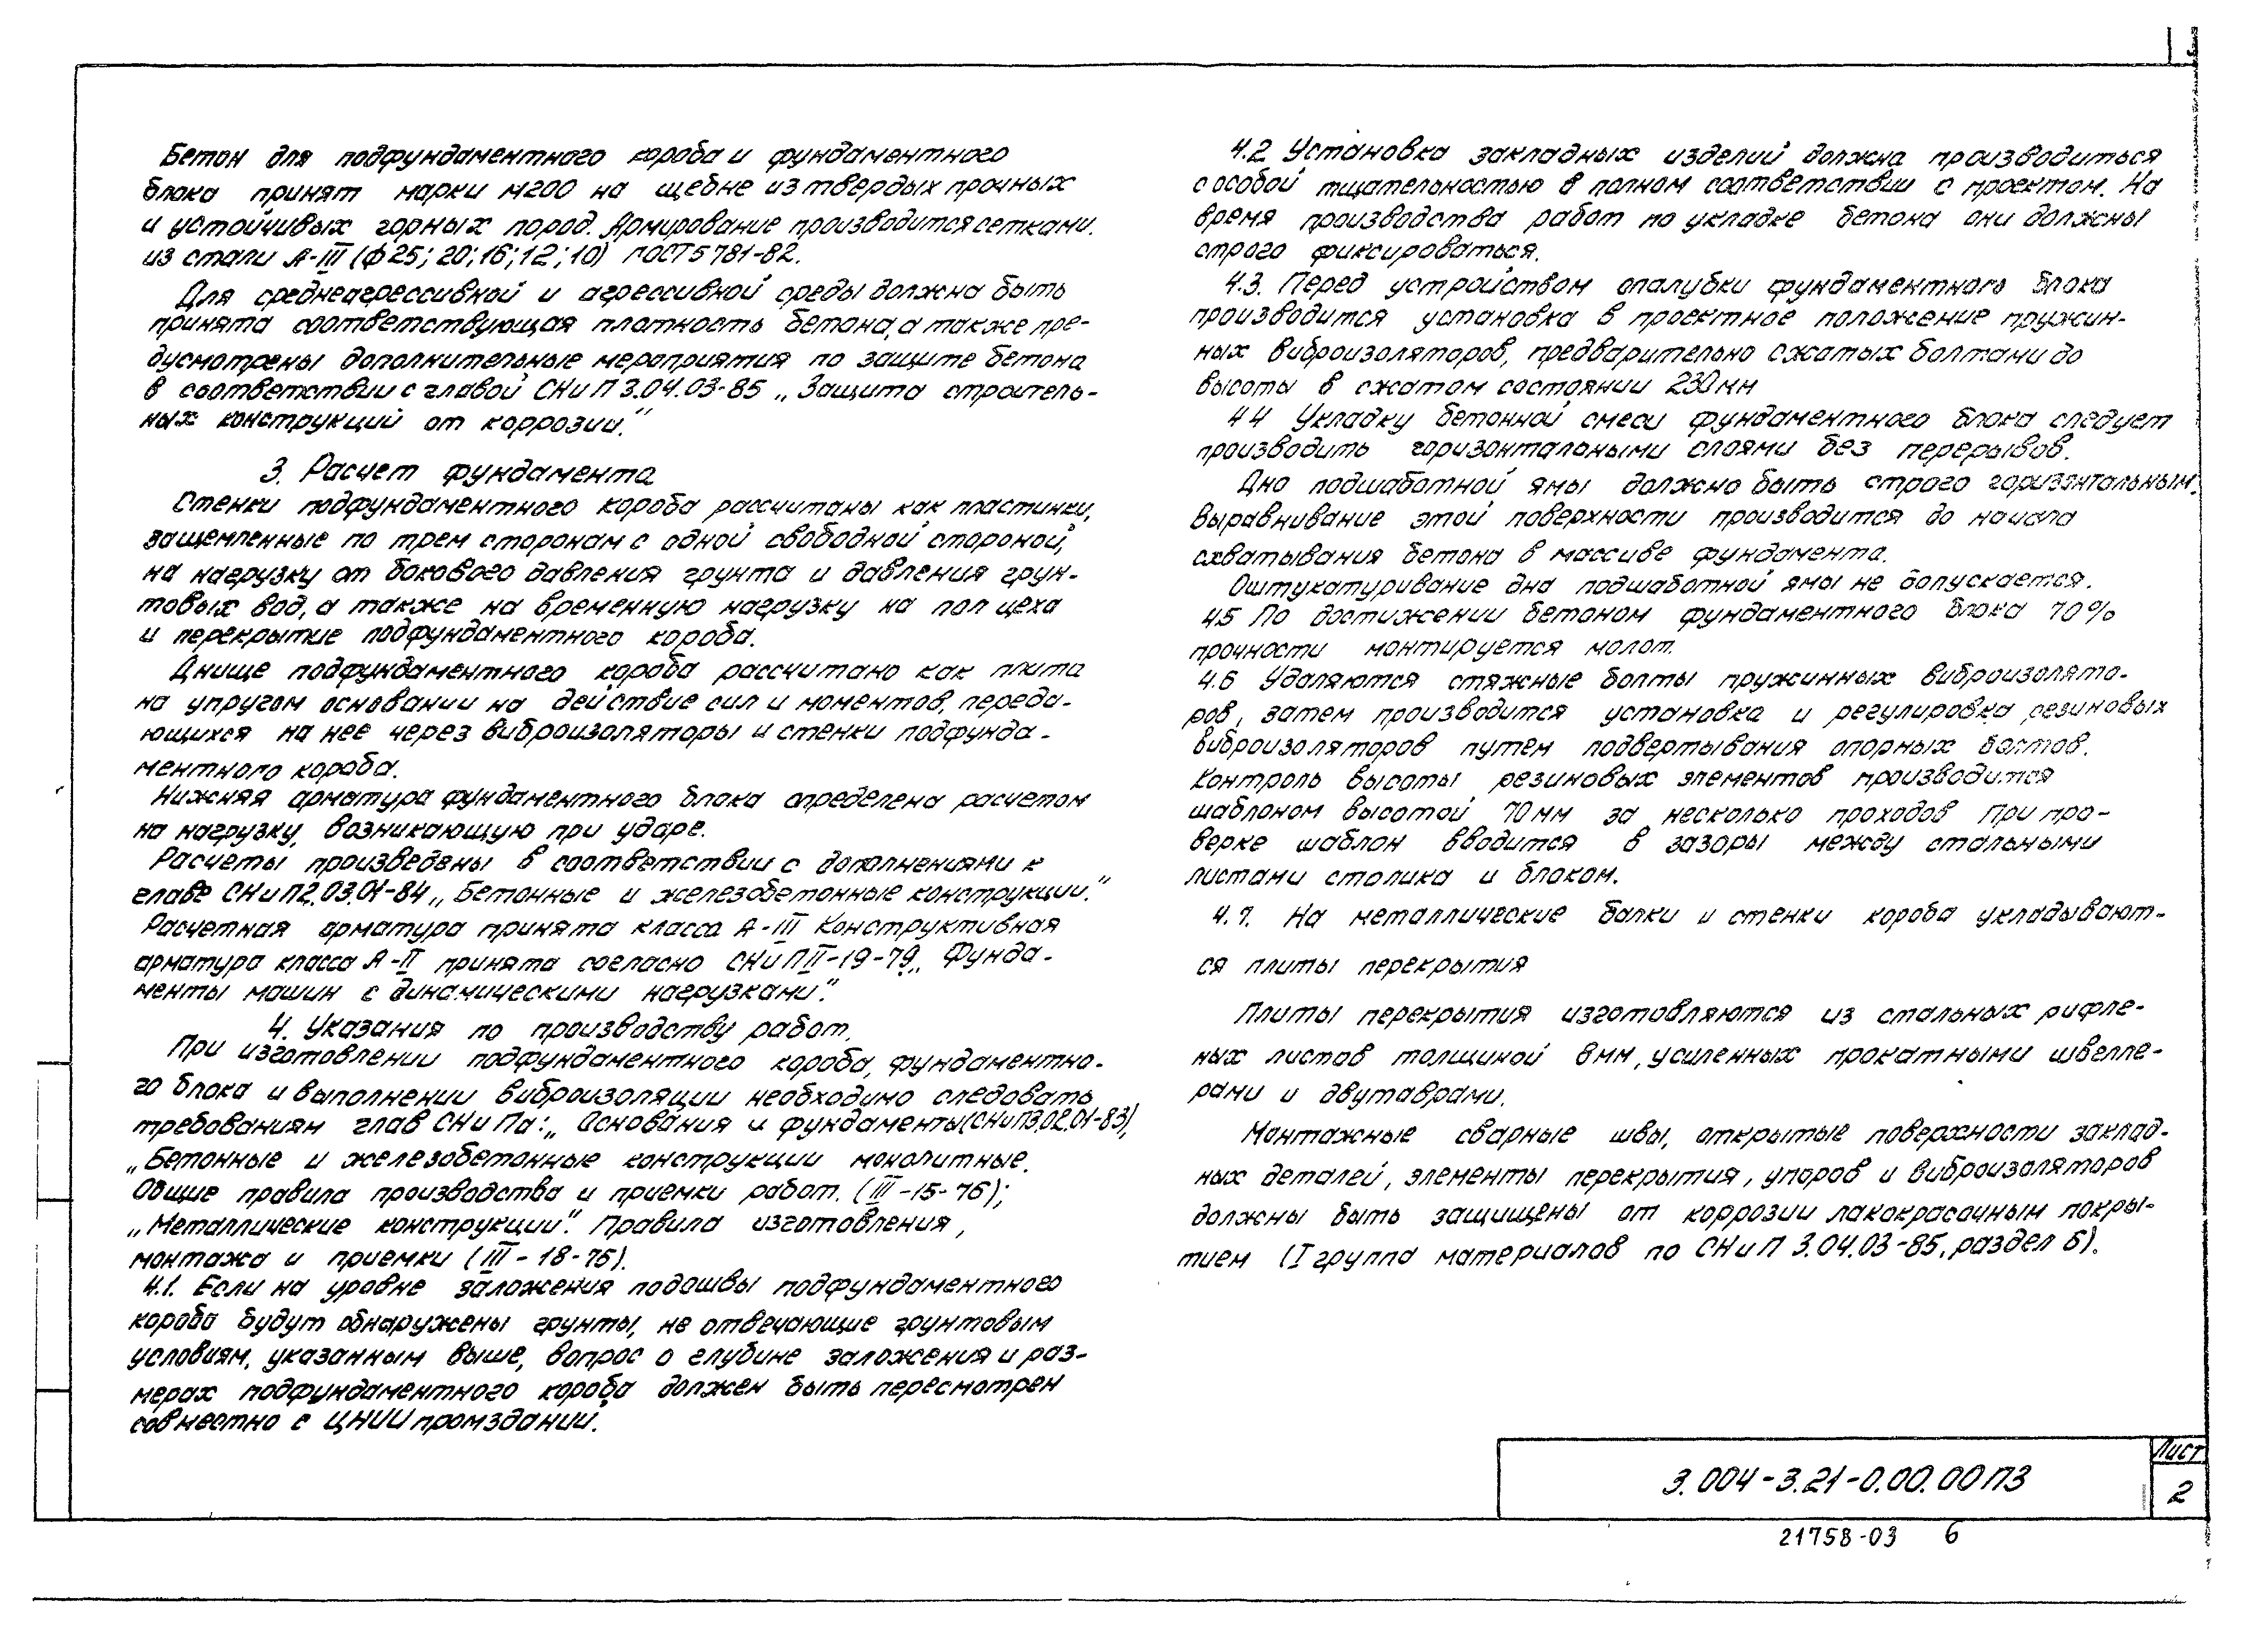 Бетон для подфундаментного короба и фундаментного
блока принят марки М200 на щебне из твердых прочных
и устойчивых горных пород. Армирование производится сетками.
из стали А-III (ф25; 20; 16; 12; 10) ГОСТ 5781-82.
Для среднеагрессивной и агрессивной среды должна быть
принята соответствующая плотность бетона, а также пре-
дусмотрены дополнительные мероприятия по защите бетона
в соответствии с главой СНиП 3.04.03-85 „Защита строитель-
ных конструкций от коррозии."
3. Расчет фундамента
Стенки подфундаментного короба рассчитаны как пластинки,
защемленные по трем сторонам с одной свободной стороной,
на нагрузку от бокового давления грунта и давления грун-
товых вод, а также на временную нагрузку на пол цеха
и перекрытие подфундаментного короба.
Днище подфундаментного короба рассчитано как плита
на упругом основании на действие сил и моментов, переда-
ющихся на нее через виброизоляторы и стенки подфунда-
ментного короба.
Нижняя арматура фундаментного блока определена расчетом
на нагрузку, возникающую при ударе.
Расчеты произведены в соответствии с дополнениями к
главе СНиП 2.03.01-84 „Бетонные и железобетонные конструкции."
Расчетная арматура принята класса А-III Конструктивная
арматура класса А-II принята согласно СНиП II-19-79 „Фунда-
менты машин с динамическими нагрузками."
4. Указания по производству работ.
При изготовлении подфундаментного короба, фундаментно-
го блока и выполнении виброизоляции необходимо следовать
требованиям глав СНиПа: „Основания и фундаменты (СНиП3.02.01-83),
„Бетонные и железобетонные конструкции монолитные.
Общие правила производства и приемки работ. (III-15-76);
„Металлические конструкции". Правила изготовления,
монтажа и приемки (III-18-75).
4.1. Если на уровне заложения подошвы подфундаментного
короба будут обнаружены грунты, не отвечающие грунтовым
условиям, указанным выше, вопрос о глубине заложения и раз-
мерах подфундаментного короба должен быть пересмотрен
совместно с ЦНИИпромзданий.
4.2 Установка закладных изделий должна производиться
с особой тщательностью в полном соответствии с проектом. На
время производства работ по укладке бетона они должны
строго фиксироваться.
4.3. Перед устройством опалубки фундаментного блока
производится установка в проектное положение пружин-
ных виброизоляторов, предварительно сжатых болтами до
высоты в сжатом состоянии 230мм
4.4 Укладку бетонной смеси фундаментного блока следует
производить горизонтальными слоями без перерывов.
Дно подшаботной ямы должно быть строго горизонтальным.
Выравнивание этой поверхности производится до начала
схватывания бетона в массиве фундамента.
Оштукатуривание дна подшаботной ямы не допускается.
4.5 По достижении бетоном фундаментного блока 70%
прочности монтируется молот.
4.6 Удаляются стяжные болты пружинных виброизолято-
ров, затем производится установка и регулировка резиновых
виброизоляторов путем подвертывания опорных болтов.
Контроль высоты резиновых элементов производится
шаблоном высотой 70мм за несколько проходов При про-
верке шаблон вводится в зазоры между стальными
листами столика и блоком.
4.7. На металлические балки и стенки короба укладывают-
ся плиты перекрытия
Плиты перекрытия изготовляются из стальных рифле-
ных листов толщиной 8мм, усиленных прокатными швелле-
рами и двутаврами.
Монтажные сварные швы, открытые поверхности заклад-
ных деталей, элементы перекрытия, упоров и виброизоляторов
должны быть защищены от коррозии лакокрасочным покры-
тием (I группа материалов по СНиП 3.04.03-85, раздел 5).
3.004-3.21-0.00.00ПЗ
Лист
2
21758-03 6